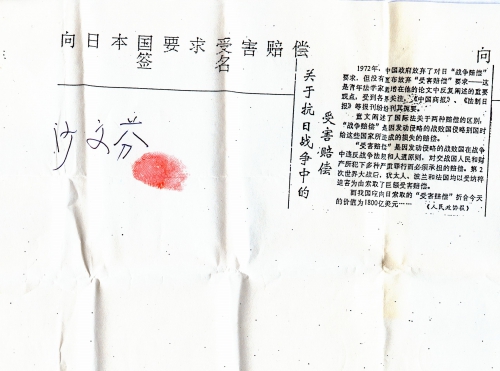 向日本国要求受害赔偿
签名
向
关于抗日战争中的
受害赔偿
1972年,中国政府放弃了对日“战争赔偿”
要求,但没有宣布放弃“受害赔偿”要求——这
是青年法学家童增在他的论文中反复阐述的重要
观点,受到各界关注。《中国商报》、《法制日
报》等报刊纷纷刊其原文。
童文阐述了国际法关于两种赔偿的区别,
“战争赔偿”是因发动侵略的战败国侵略到国时
给这些国家所造成的损失的赔偿。
“受害赔偿”是因发动侵略的战败国在战争
中违反战争法规和人道原则,对交战国人民和财
产所犯下多种严重罪行而必须承担的赔偿。第2
次世界大战后,犹太人、波兰和法国均以受纳粹
迫害为由索取了巨额受害赔偿。
而我国应向日索取的“受害赔偿”折合今天
的价值为1800亿美元……《人民政协报》
沙文芬